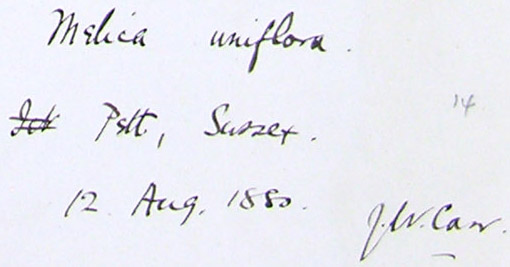 Melica uniflora.
Pett, Sussex.
14
12 Aug. 1880.
J.W. Carr.